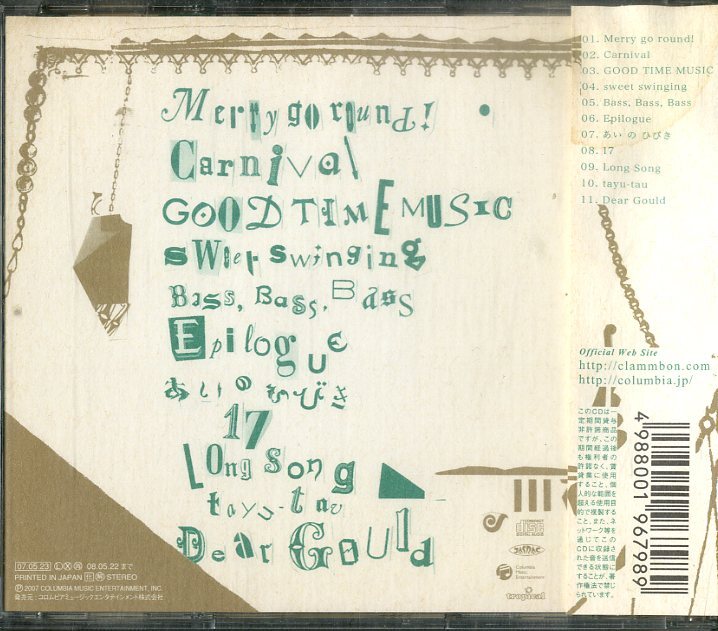 Merry go round!
Carnival
GOOD TIME MUSIC
sweet swinging
Bass, Bass, Bass
Epilogue
あいのひびき
17
Long Song
tayu-tau
Dear Gould
07.05.23 L X 再 08.05.22 まで
PRINTED IN JAPAN STEREO
Ⓟ2007 COLUMBIA MUSIC ENTERTAINMENT, INC.
発売元:コロムビアミュージックエンタテインメント株式会社
COMPACT
disc
DIGITAL AUDIO
JASRAC
Columbia
Music
Entertainment
tropical
01. Merry go round!
02. Carnival
03. GOOD TIME MUSIC
04. sweet swinging
05. Bass, Bass, Bass
06. Epilogue
07. あい の ひびき
08. 17
09. Long Song
10. tayu-tau
11. Dear Gould
Official Web Site
http://clammbon.com
http://columbia.jp/
このCDは一
定期間貸与
非許諾商品
ですが、この
期間経過後
も権利者の
許諾なく、賃
貸業に使用
すること、個
人的な範囲を
超える使用目的
で複製する
こと、また、ネ
ットワーク等を
通じてこの
CDに収録され
た音を送信
できる状態に
することが、著
作権法で禁じ
られています。
4988001967989